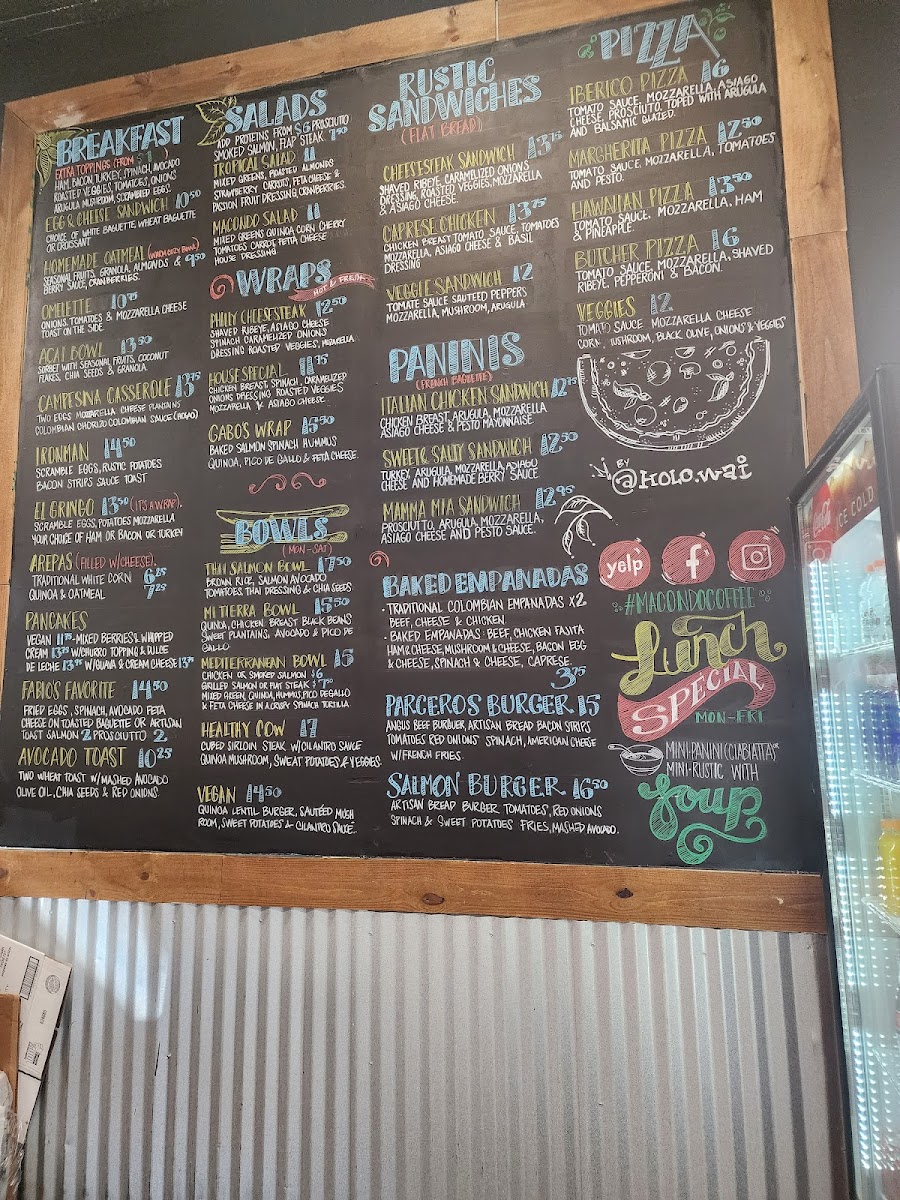 BREAKFAST
EXTRA TOPPINGS (FROM $1)
HAM, BACON, TURKEY, SPINACH, AVOCADO
ROASTED VEGGIES, TOMATOES, ONIONS
ARUGULA MUSHROOM, SCRAMBLED EGGS.
EGG & CHEESE SANDWICH 10.50
CHOICE OF WHITE BAGUETTE, WHEAT BAGUETTE
OR CROISSANT
HOMEMADE OATMEAL
SEASONAL FRUITS, GRANOLA, ALMONDS & 9.50
BERRY SAUCE, CRANBERRIES.
OMELETTE 10.75
ONIONS, TOMATOES & MOZZARELLA CHEESE
TOAST ON THE SIDE
ACAI BOWL 13.50
SORBET WITH SEASONAL FRUITS, COCONUT
FLAKES, CHIA SEEDS & GRANOLA.
CAMPESINA CASSEROLE 13.75
TWO EGGS MOZZARELLA CHEESE PLANTAINS
COLOMBIAN CHORIZO COLOMBIAN SAUCE (HOGAO)
IRONMAN 14.50
SCRAMBLE EGGS, RUSTIC POTATOES
BACON STRIPS SAUCE TOAST
EL GRINGO 13.50 (IT'S A WRAP).
SCRAMBLE EGGS, POTATOES MOZZARELLA
YOUR CHOICE OF HAM OR BACON OR TURKEY
AREPAS (FILLED W/CHEESE).
TRADITIONAL WHITE CORN 6.25
QUINOA & OATMEAL 7.25
PANCAKES
VEGAN 11.75 - MIXED BERRIES & WHIPPED
CREAM 13.25 W/CHURRO TOPPING & DULCE
DE LECHE 13.95 W/GUAVA & CREAM CHEESE 13.75
FABIO'S FAVORITE 14.50
FRIED EGGS, SPINACH, AVOCADO FETA
CHEESE ON TOASTED BAGUETTE OR ARTISAN
TOAST SALMON 2 PROSCIUTTO 2.
AVOCADO TOAST 10.25
TWO WHEAT TOAST W/ MASHED AVOCADO
OLIVE OIL, CHIA SEEDS & RED ONIONS.
SALADS
ADD PROTEINS FROM $6 PROSCIUTO
SMOKED SALMON, FLAP STEAK 7.50
TROPICAL SALAD 11
MIXED GREENS, ROASTED ALMONDS
STRAWBERRY CARROTS, FETA CHEESE &
PASSION FRUIT DRESSING, CRANBERRIES.
MACONDO SALAD 11
MIXED GREENS QUINOA CORN CHERRY
TOMATOES CARROT FETTA CHEESE
HOUSE DRESSING
WRAPS
HOT & FRESH
PHILLY CHEESESTEAK 12.50
SHAVED RIBEYE, ASIAGO CHEESE
SPINACH CARAMELIZED ONIONS
DRESSING ROASTED VEGGIES, MOZZARELLA.
HOUSE SPECIAL 11.75
CHICKEN BREAST, SPINACH, CARAMBLIZED
ONIONS DRESSING ROASTED VEGGIES
MOZZARELLA & ASIAGO CHEESE.
GABO'S WRAP 15.50
BAKED SALMON SPINACH HUMMUS
QUINOA, PICO DE GALLO & FETA CHEESE.
BOWLS
(MON-SAT)
THAI SALMON BOWL 17.50
BROWN RICE, SALMON AVOCADO
TOMATOES THAI DRESSING & CHIA SEEDS
MI TIERRA BOWL 15.50
QUINOA, CHICKEN BREAST BLACK BEANS
SWEET PLANTAINS, AVOCADO & PICO DE
GALLO
MEDITERRANEAN BOWL 15
CHICKEN OR SMOKED SALMON $6
GRILLED SALMON OR FLAT STEAK $7
MIXED GREEN, QUINOA, HUMMUS, PICO DEGALLO
& FETA CHEESE IN A CRISPY SPINACH TORTILLA.
HEALTHY COW 17
CUBED SIRLOIN STEAK W/CILANTRO SAUCE
QUINOA MUSHROOM, SWEAT POTATOES & VEGGIES.
VEGAN 14.50
QUINOA LENTIL BURGER, SAUTÉED MUSH
ROOM, SWEET POTATOES & CILANTRO SAUCE.
RUSTIC
SANDWICHES
(FLAT BREAD)
CHEESESTEAK SANDWICH 13.75
SHAVED RIBEYE, CARAMBLIZED ONIONS
DRESSING, ROASTED VEGGIES, MOZZARELLA
& ASIAGO CHEESE.
CAPRESE CHICKEN 13.75
CHICKEN BREAST TOMATO SAUCE, TOMATOES
MOZZARELLA, ASIAGO CHEESE & BASIL
DRESSING
VEGGIE SANDWICH 12
TOMATE SAUCE SAUTEED PEPPERS
MOZZARELLA, MUSHROOM, ARUGULA
PANINIS
(FRENCH BAGUETTE)
ITALIAN CHICKEN SANDWICH 12.75
CHICKEN BREAST, ARUGULA, MOZZARELLA
ASIAGO CHEESE & PESTO MAYONNAISE.
SWEETG SALTY SANDWICH 12.50
TURKEY, ARUGULA, MOZZARELLA, ASIAGO
CHEESE AND HOMEMADE BERRY SAUCE
MAMMA MIA SANDWICH 12.95
PROSCIUTTO, ARUGULA, MOZZARELLA,
ASIAGO CHEESE AND PESTO SAUCE.
BAKED EMPANADAS
• TRADITIONAL COLOMBIAN EMPANADAS X2
BEEF, CHEESE & CHICKEN
• BAKED EMPANADAS: BEEF, CHICKEN FAJITA
HAM & CHEESE, MUSHROOM & CHEESE, BACON EGG
& CHEESE, SPINACH & CHEESE, CAPRESE.
3.75
PARCEROS BURGER 15
ANGUS BEEF BURGUER, ARTISAN BREAD BACON STRIPS
TOMATOES RED ONIONS SPINACH, AMERICAN CHEESE
W/FRENCH FRIES.
SALMON BURGER 16.50
ARTISAN BREAD BURGER TOMATOES, RED ONIONS
SPINACH & SWEET POTATOES FRIES, MASHED AVOCADO.
PIZZA
IBERICO PIZZA 16
TOMATO SAUCE, MOZZARELLA, ASIAGO
CHEESE, PROSCIUTO, TOPED WITH ARUGULA
AND BALSAMIC GLAZED.
MARGHERITA PIZZA 12.50
TOMATO SAUCE, MOZZARELLA, TOMATOES
AND PESTO.
HAWAIIAN PIZZA 13.50
TOMATO SAUCE, MOZZARELLA, HAM
& PINEAPPLE.
BUTCHER PIZZA 16
TOMATO SAUCE MOZZARELLA, SHAVED
RIBEYE, PEPPERONI & BACON.
VEGGIES 12
TOMATO SAUCE MOZZARELLA CHEESE
CORN, MUSHROOM, BLACK OLIVE, ONIONS & VEGGIES
BY
@KOLO.WAI
yelp
f
#MACONDOCOFFEE
Lunch
SPECIAL
MON-FRI
MINI-PANINI (CIABATTAS)
MINI-RUSTIC WITH
Soup
ICE COLD